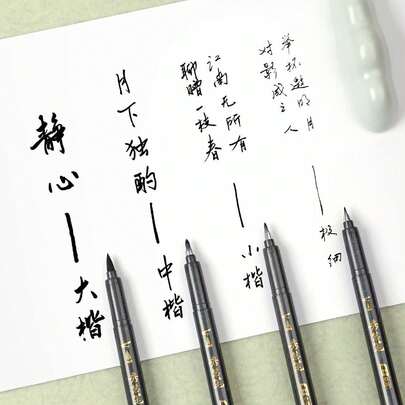 举杯邀明月
对影成三人
—极细
江南无所有
聊赠一枝春
—小楷
月下独酌—中楷
静心—大楷